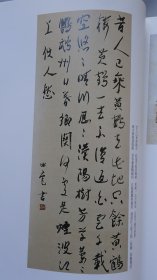 昔人已乘黃鶴去此地只餘黃鶴
樓黃鶴一去不復返白雲千載
空悠悠晴川歷歷漢陽樹芳草萋萋
鸚鵡洲日暮鄉關何處是煙波江
上使人愁
書